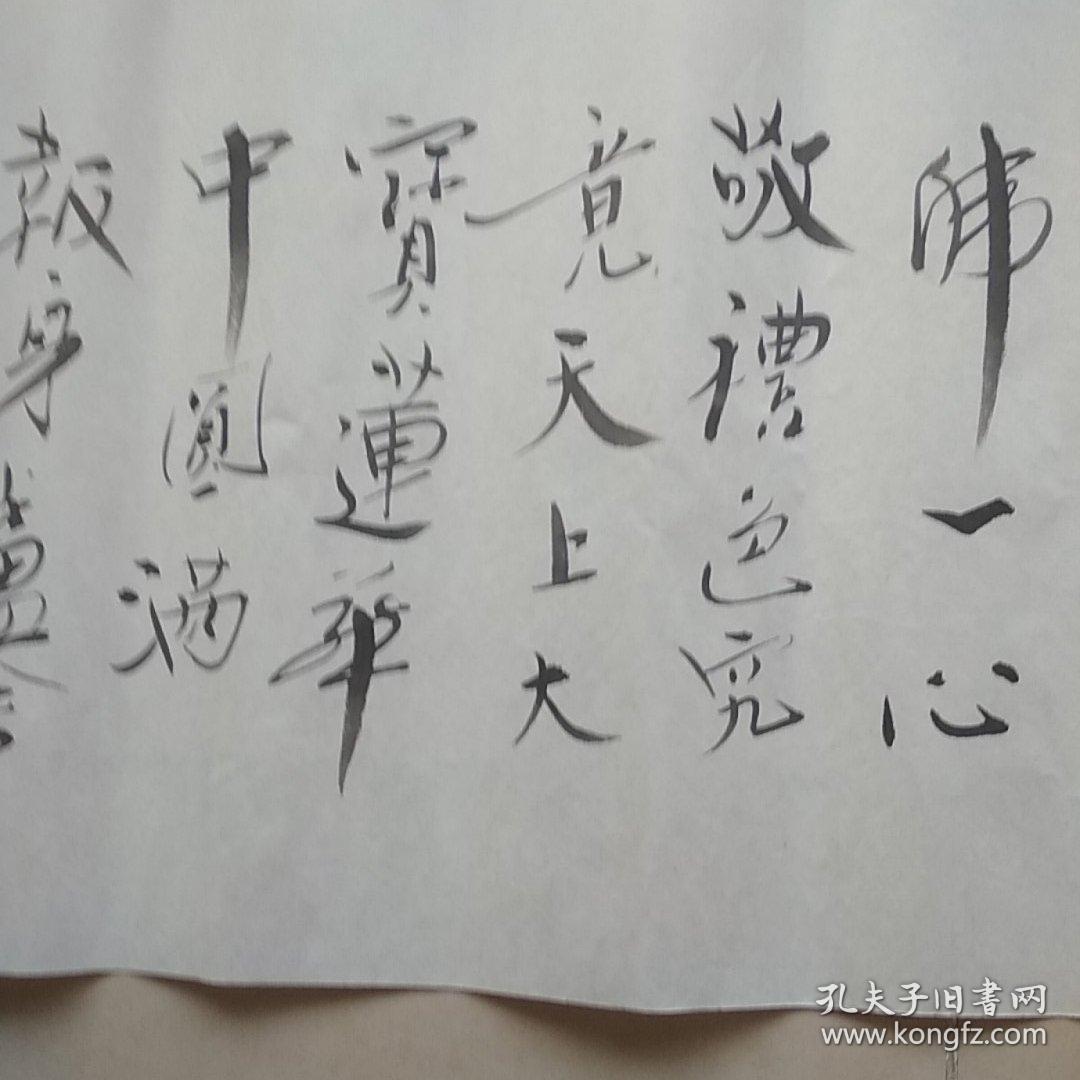 佛一心
敬禮色究
竟天上大
寳蓮華
中圓滿
報身盧舍
孔夫子旧書网
www.kongfz.com